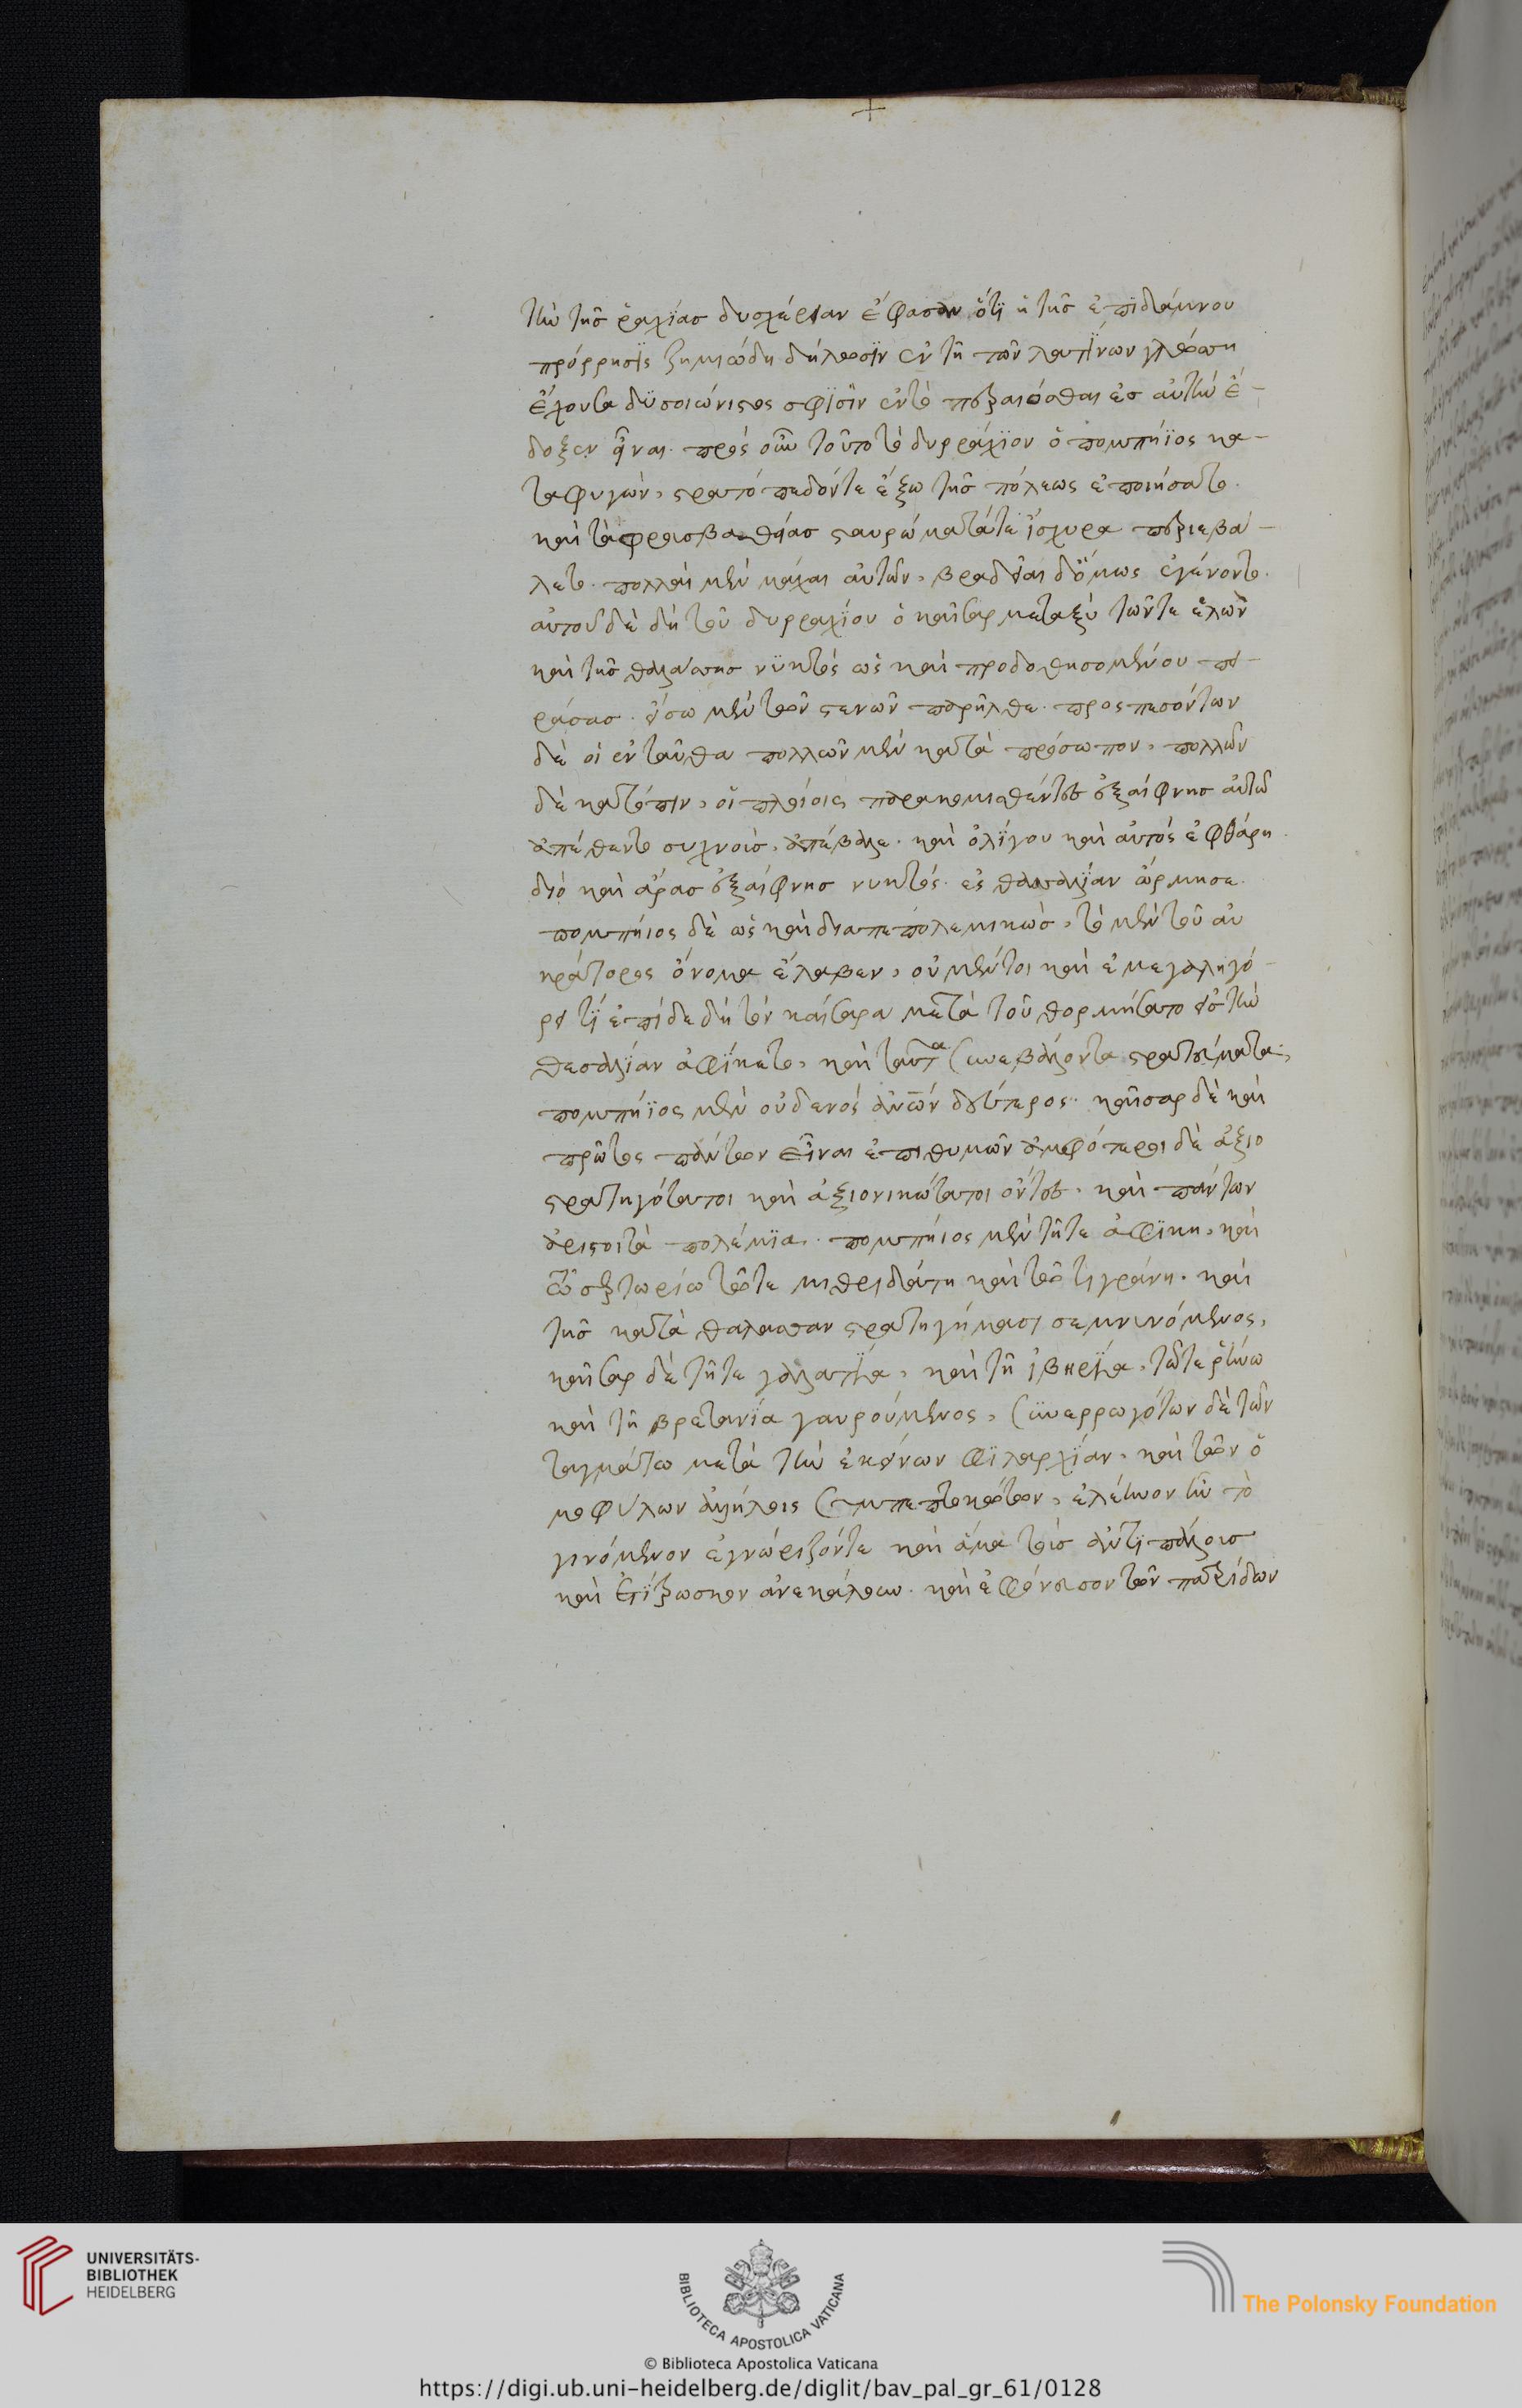 τὴν τῆς ῥαχίας δυσχέρειαν ἔφασαν ὅτι ἡ τῆς ἐπιδάμνου
πρόρρησις ζημιώδη δήλωσιν ἐν τῇ τῶν λατίνων γλώσση
ἔχουσα δυσοιώνιστος σφίσιν ἐς τὸ περαιοῦσθαι ἐς αὐτὴν ἔ-
δοξεν εἶναι. πρὸς οὖν τοῦτο τὸ δυρράχιον ὁ πομπήϊος κα-
ταφυγών, στρατόπεδόν τε ἔξω τῆς πόλεως ἐποιήσατο.
καὶ τάφρους βαθείας σταυρώματά τε ἰσχυρὰ περιεβά-
λετο. πολλαὶ μὲν μάχαι αὐτῶν, βραδεῖαι δ' ὅμως ἐγένοντο.
αὐτοῦ δὲ δὴ τοῦ δυρραχίου ὁ καῖσαρ μεταξὺ τῶν τε ἑλῶν
καὶ τῆς θαλάσσης νυκτὸς ὡς καὶ προδοθησομένου πει-
ράσας. εἴσω μὲν τῶν στενῶν παρῆλθε. προσπεσόντων
δέ οἱ ἐνταῦθα πολλῶν μὲν κατὰ πρόσωπον, πολλῶν
δὲ κατόπιν, οἳ πλοίοις παρακομισθέντες ἐξαίφνης αὐτῶ
ἐπέθεντο συχνοὺς, ἀπέβαλε. καὶ ὀλίγου καὶ αὐτὸς ἐφθάρη.
διὸ καὶ ἄρας ἐξαίφνης νυκτὸς. ἐς θεσσαλίαν ὥρμησε.
πομπήιος δὲ ὡς καὶ διαπεπολεμηκὼς, τὸ μὲν τοῦ αὐ
κράτορος ὄνομα ἔλαβεν, οὐ μέντοι καὶ ἐμεγαληγό-
ρει τι ἐπεὶ δὲ δὴ τόν καίσαρα μετὰ τοῦθ' ὁρμήσατο εἰς τὴν
θεσαλίαν ἀφίκετο, καὶ ταῦτα συνεβάλοντο στρατεύματα,
πομπήϊος μὲν οὐδενὸς ἀνθρώπων δεύτερος. καῖσαρ δὲ καὶ
πρῶτος πάντων εἶναι ἐπιθυμῶν ἀμφότεροι δὲ ἀξιο
στρατηγότατοι καὶ ἀξιονικώτατοι ὄντες. καὶ πάντων
ἄριστοι τὰ πολέμια. πομπήιος μὲν τῇ τε ἀφρικῇ, καὶ
τῶ σερτωρίω τῶ τε μιθριδάτη καὶ τῶ τιγράνη. καὶ
τοῖς κατὰ θαλασσαν στρατηγήμασι σεμνυνόμενος,
καῖσαρ δὲ τῇ τε γαλατία, καὶ τῇ ἰβηρία, τῶ τε ῥήνω
καὶ τῇ βρετανία γαυρούμενος, συνερρωγότων δὲ τῶν
ταγμάτων μετὰ τὴν ἐκείνων φιλαρχίαν, καὶ τῶν ὁ
μοφύλων ἀλλήλοις συμπεπτωκότων, ἐλέεινον ἦν τὸ
γινόμενον ἐγνώριζόν τε καὶ ἅμα τοὺς ἀντιπάλους
καὶ ἐτίτρωσκον ἀνεκάλουν. καὶ ἐφόνευσον τῶν πατρίδων
UNIVERSITÄTS-
BIBLIOTHEK
HEIDELBERG
BIBLIOTECA APOSTOLICA VATICANA
The Polonsky Foundation
© Biblioteca Apostolica Vaticana
https://digi.ub.uni-heidelberg.de/diglit/bav_pal_gr_61/0128